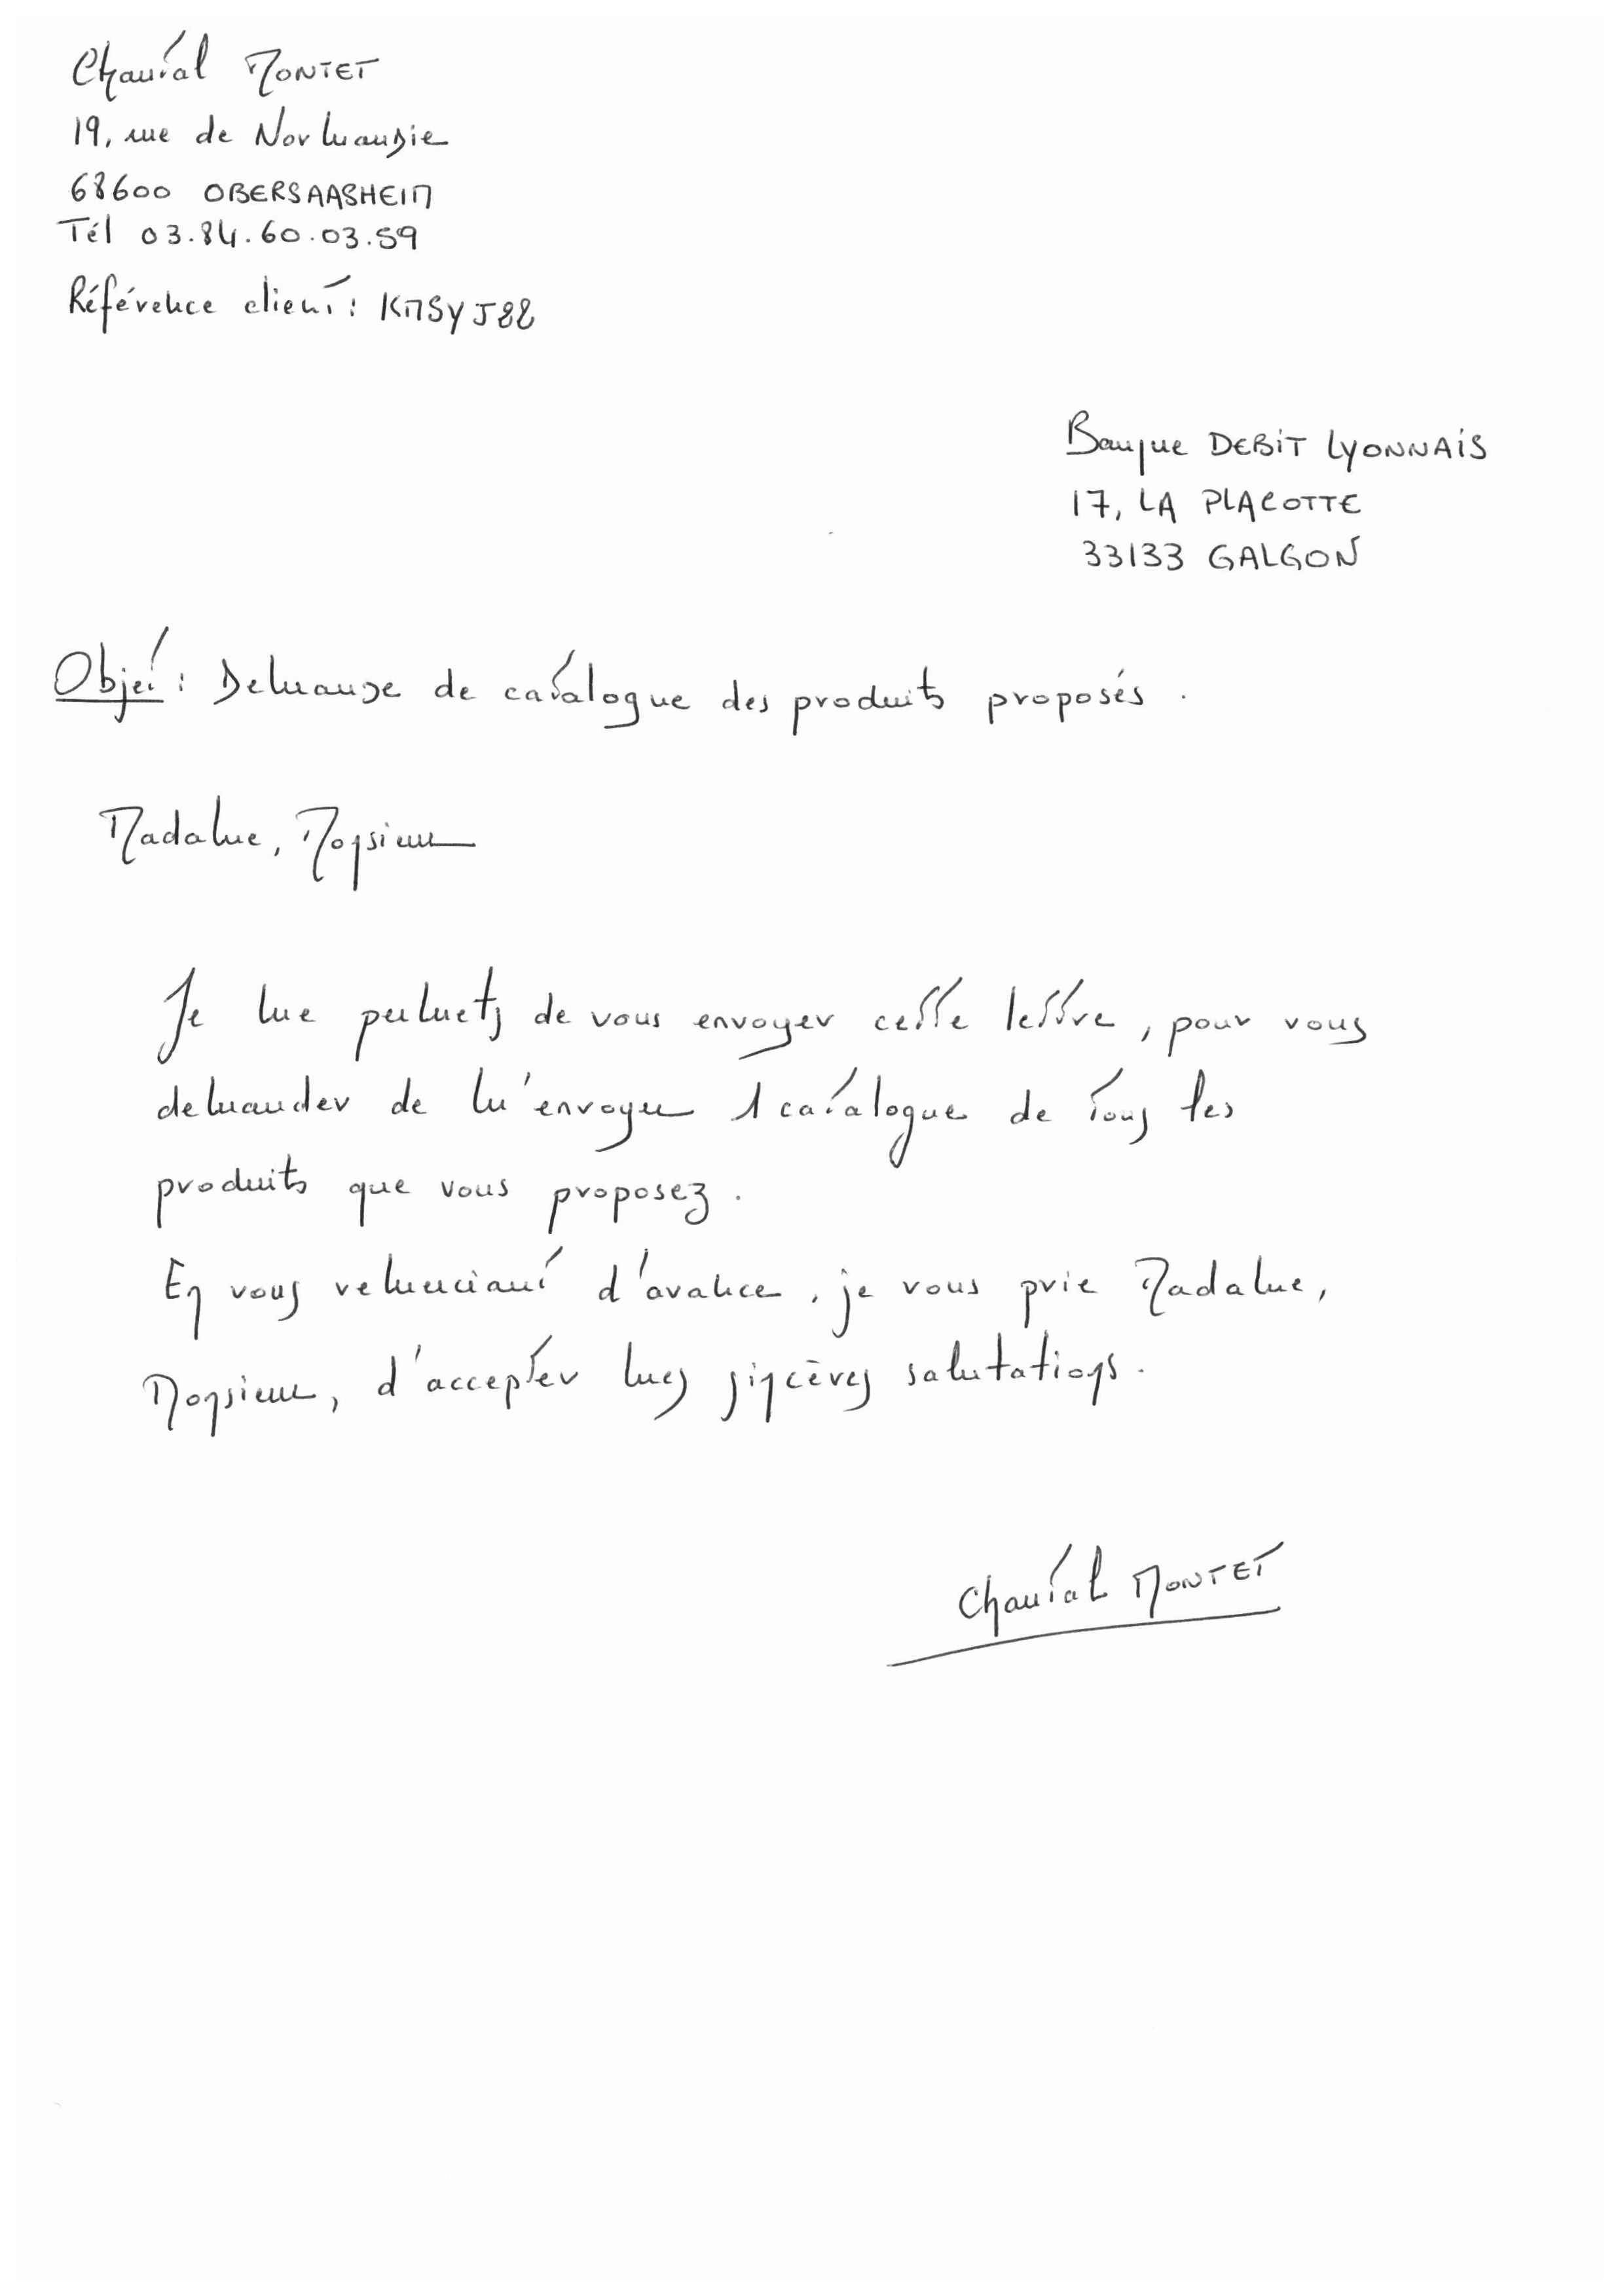 Chantal MONTET
19, rue de Normandie
68600 OBERSAASHEIM
Tél 03.84.60.03.59
Référence client : KMSYJ88
Banque DEBIT LYONNAIS
17, LA PLACOTTE
33133 GALGON
Objet : Demande de catalogue des produits proposés.
Madame, Monsieur
Je me permets de vous envoyer cette lettre, pour vous
demander de m'envoyer 1 catalogue de tous les
produits que vous proposez.
En vous remerciant d'avance, je vous prie Madame,
Monsieur, d'accepter mes sincères salutations.
Chantal MONTET